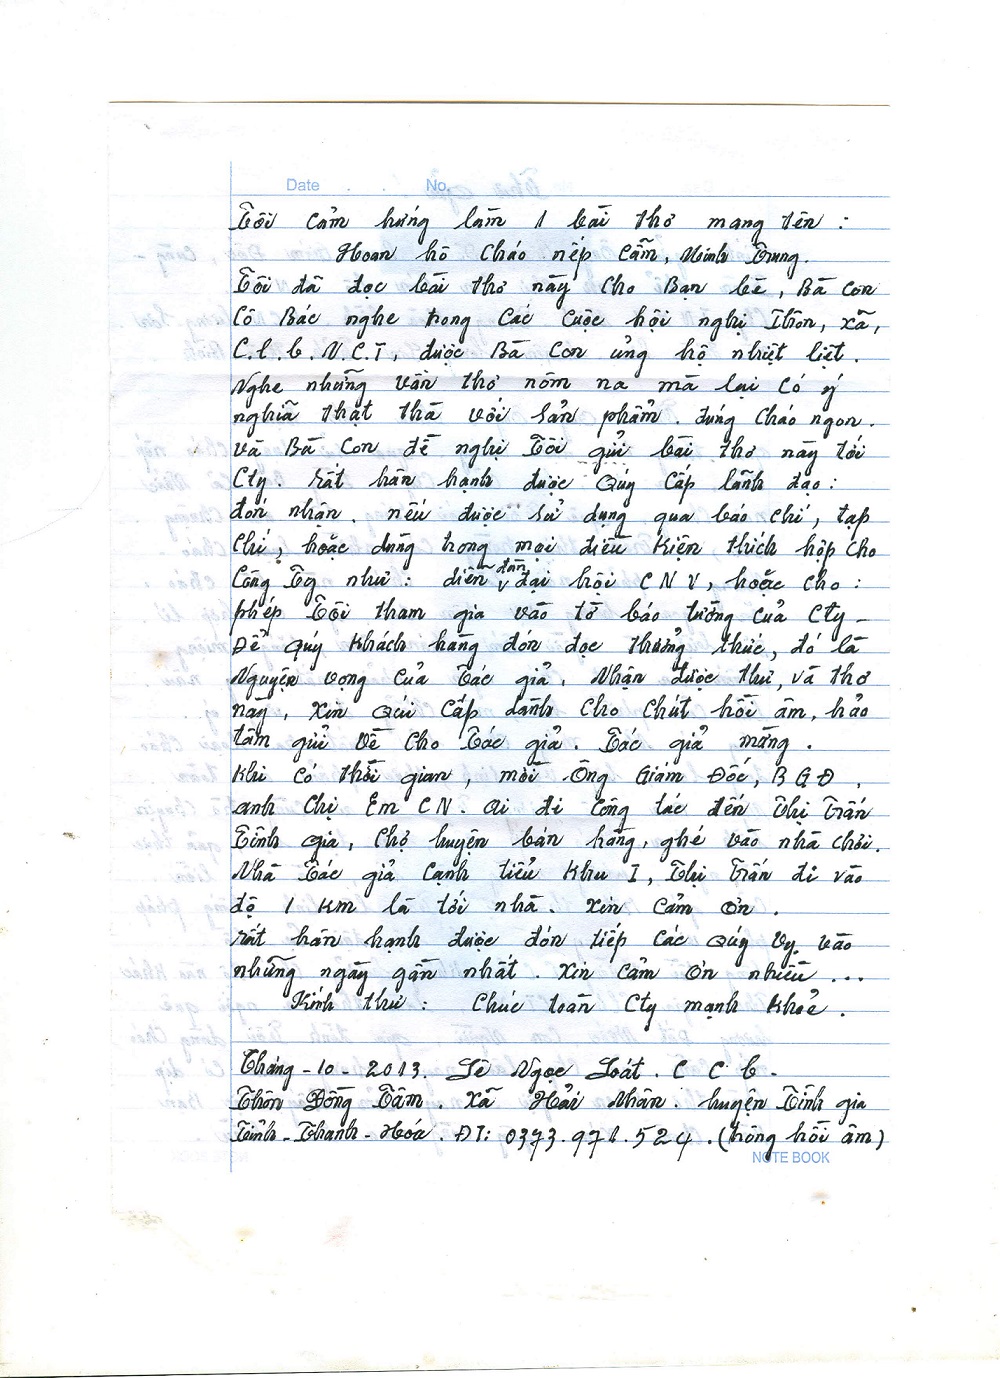 Date . . No.
Tôi cảm hứng làm 1 bài thơ mang tên :
Hoan hô Cháo nếp Cẩm, Minh Trung.
Tôi đã đọc bài thơ này cho Bạn bè, Bà Con
Cô Bác nghe trong các cuộc hội nghị Thôn, xã,
C.l.b.N.C.T, được Bà Con ủng hộ nhiệt liệt.
Nghe những vần thơ nôm na mà lại có ý
nghĩa thật thà với sản phẩm. đúng Cháo ngon.
và Bà Con đề nghị Tôi gửi bài thơ này tới
Cty. rất hân hạnh được Quý Cấp lãnh đạo:
đón nhận. nếu được sử dụng qua báo chí, tạp
chí, hoặc dùng trong mọi điều kiện thích hợp cho
Công Ty như : diễn đàn đại hội CNV, hoặc cho :
phép Tôi tham gia vào tờ báo tường của Cty -
Để Quý Khách hàng đón đọc thưởng thức, đó là
Nguyện vọng của Tác giả. Nhận được thư, và thơ
này, xin Quí Cấp dành cho chút hồi âm, hảo
tâm gửi về cho Tác giả. Tác giả mừng.
Khi có thời gian, mời Ông Giám Đốc, BGĐ,
anh Chị Em CN. ai đi công tác đến Thị Trấn
Tĩnh gia, Chợ huyện bán hàng, ghé vào nhà chơi.
Nhà Tác giả cạnh tiểu Khu I, Thị Trấn đi vào
độ 1 Km là tới nhà. xin cảm ơn.
rất hân hạnh được đón tiếp các Quý Vỵ vào
những ngày gần nhất. xin cảm ơn nhiều ...
Kính thư : Chúc toàn Cty mạnh khoẻ.
Tháng - 10 - 2013. Lê Ngọc Loát. C C b -
Thôn Đồng Tâm. xã Hải Nhân. huyện Tĩnh gia
Tỉnh - Thanh - Hóa. ĐT: 0373.971.524. (hóng hồi âm)
NOTE BOOK